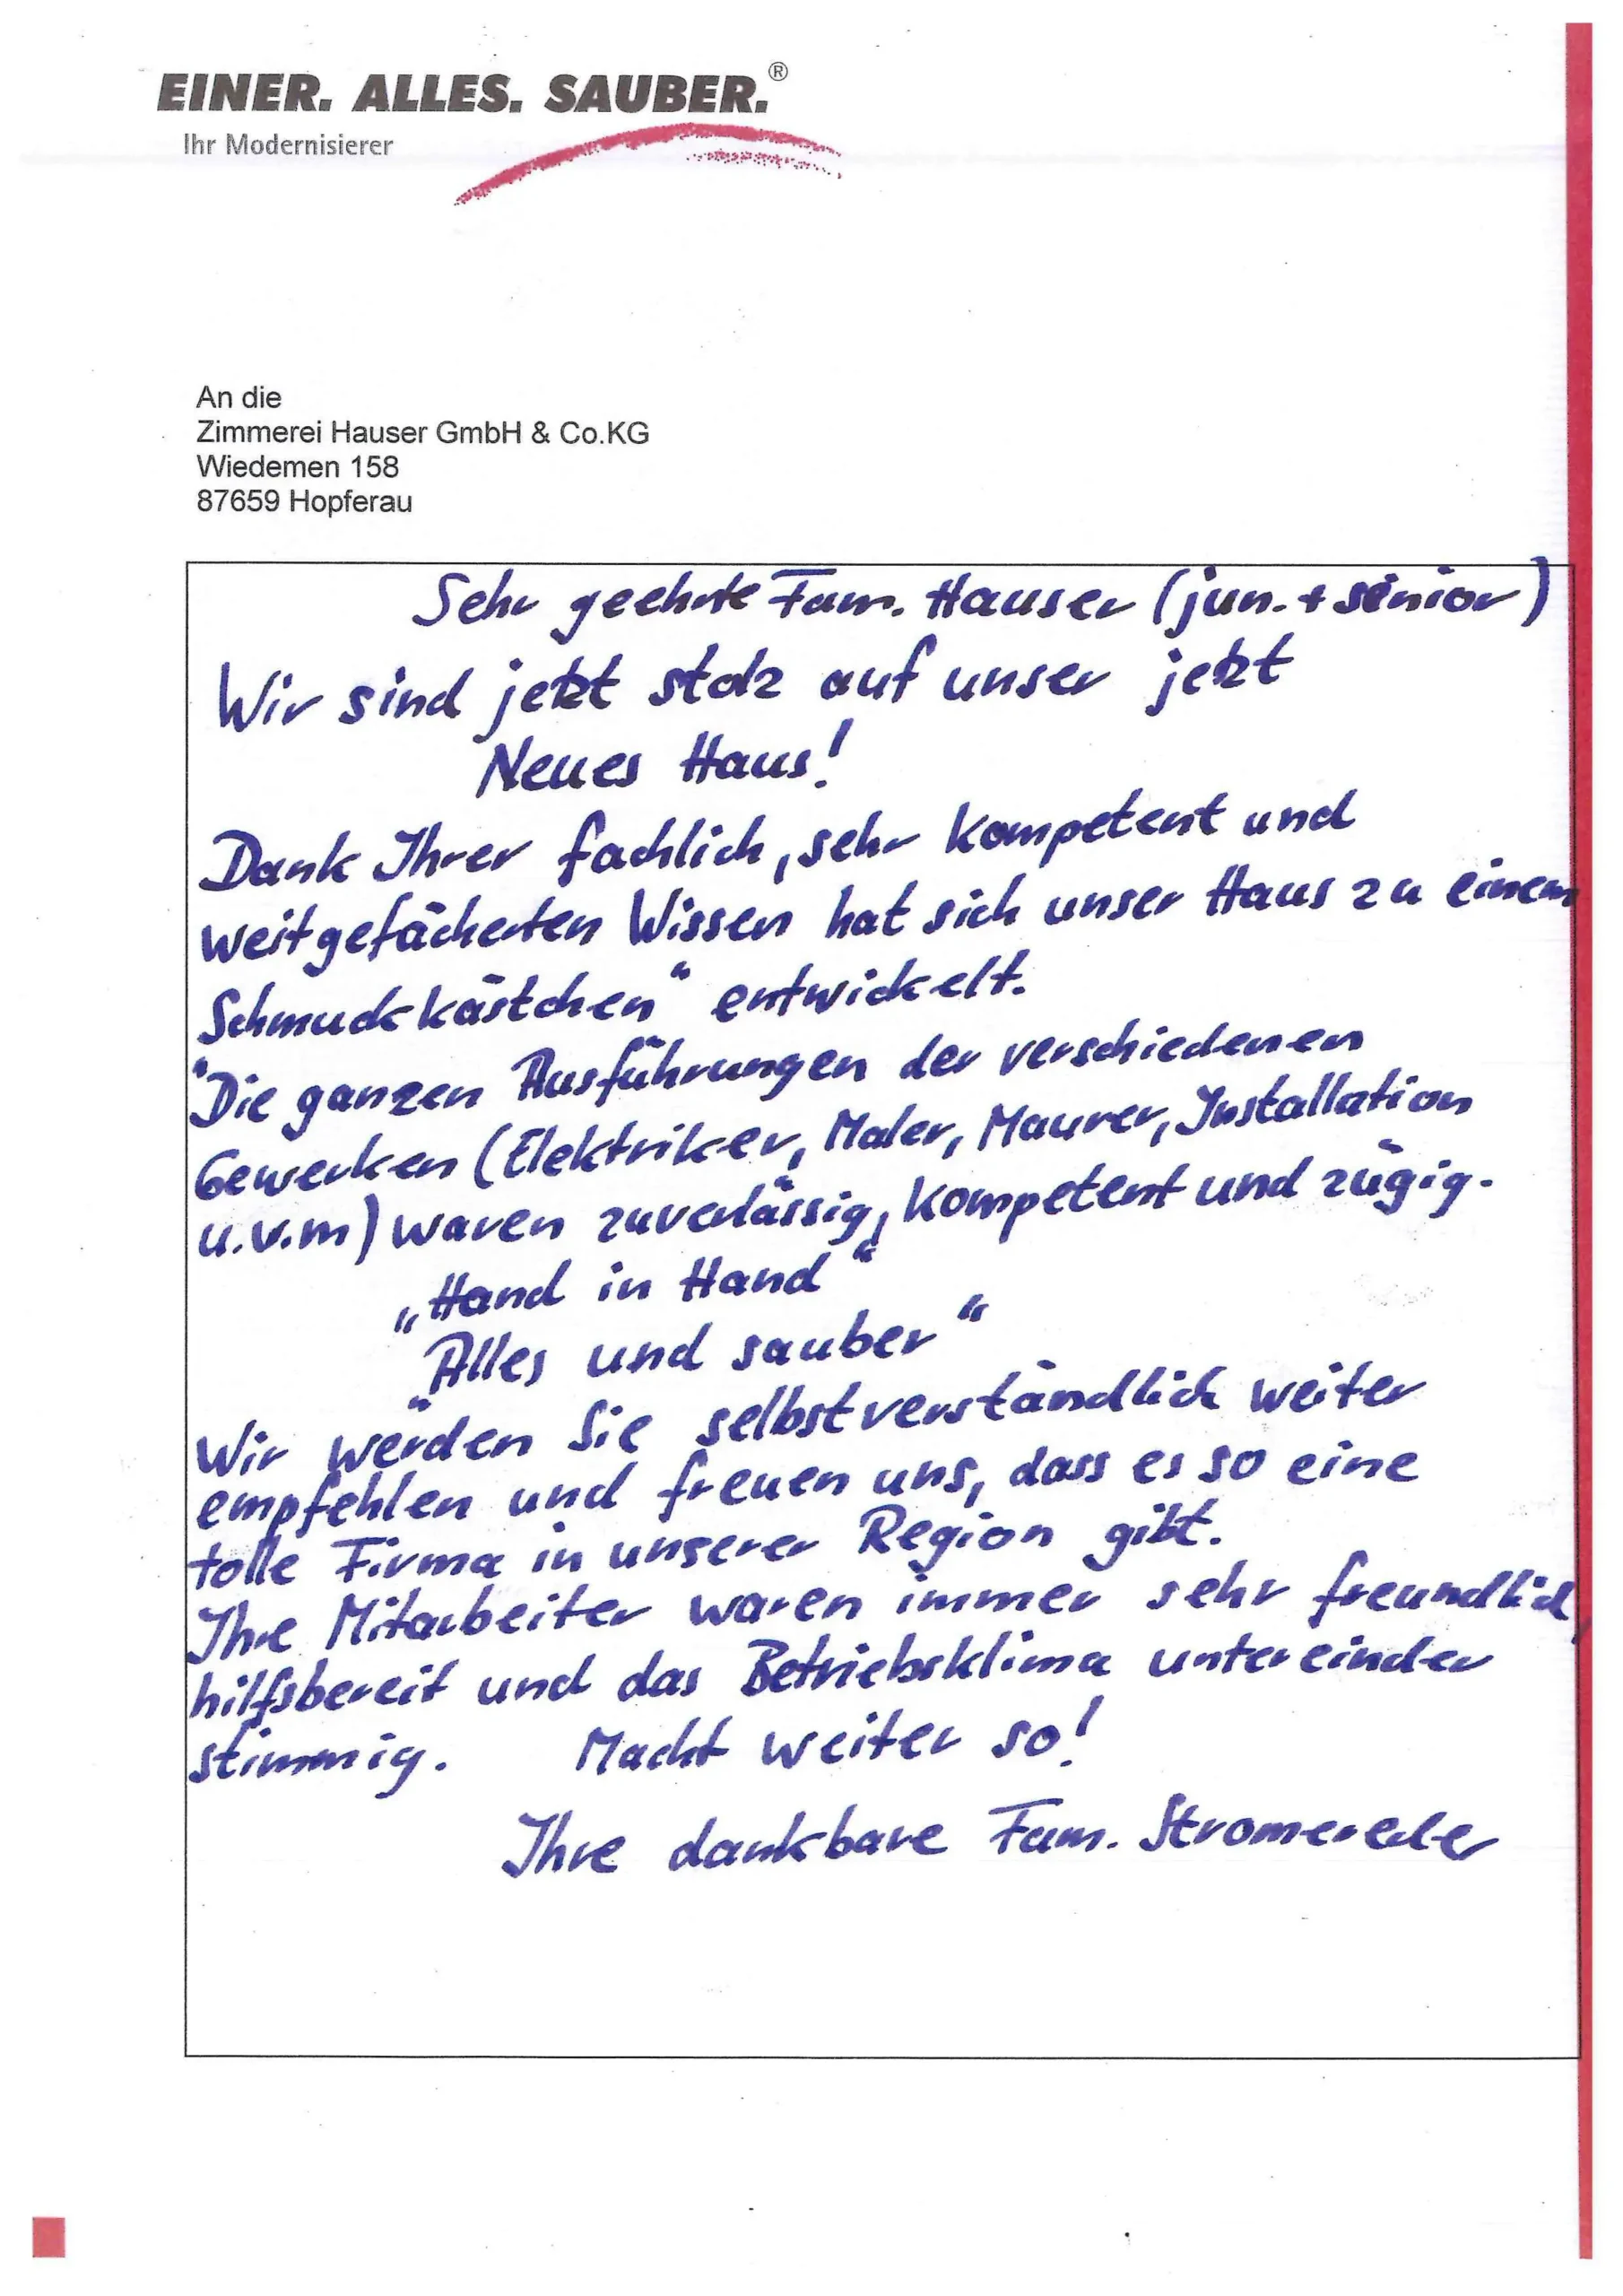 EINER. ALLES. SAUBER.®
Ihr Modernisierer
An die
Zimmerei Hauser GmbH & Co.KG
Wiedemen 158
87659 Hopferau
Sehr geehrte Fam. Hauser (jun. + senior)
Wir sind jetzt stolz auf unser jetzt
Neues Haus!
Dank Ihrer fachlich, sehr kompetent und
weitgefächerten Wissen hat sich unser Haus zu einem
"Schmuckkästchen" entwickelt.
Die ganzen Ausführungen der verschiedenen
Gewerken (Elektriker, Maler, Maurer, Installation
u.v.m) waren zuverlässig, kompetent und zügig.
„Hand in Hand"
"Alles und sauber"
Wir werden Sie selbstverständlich weiter
empfehlen und freuen uns, dass es so eine
tolle Firma in unserer Region gibt.
Ihre Mitarbeiter waren immer sehr freundlich,
hilfsbereit und das Betriebsklima untereinder
stimmig. Macht weiter so!
Ihre dankbare Fam.